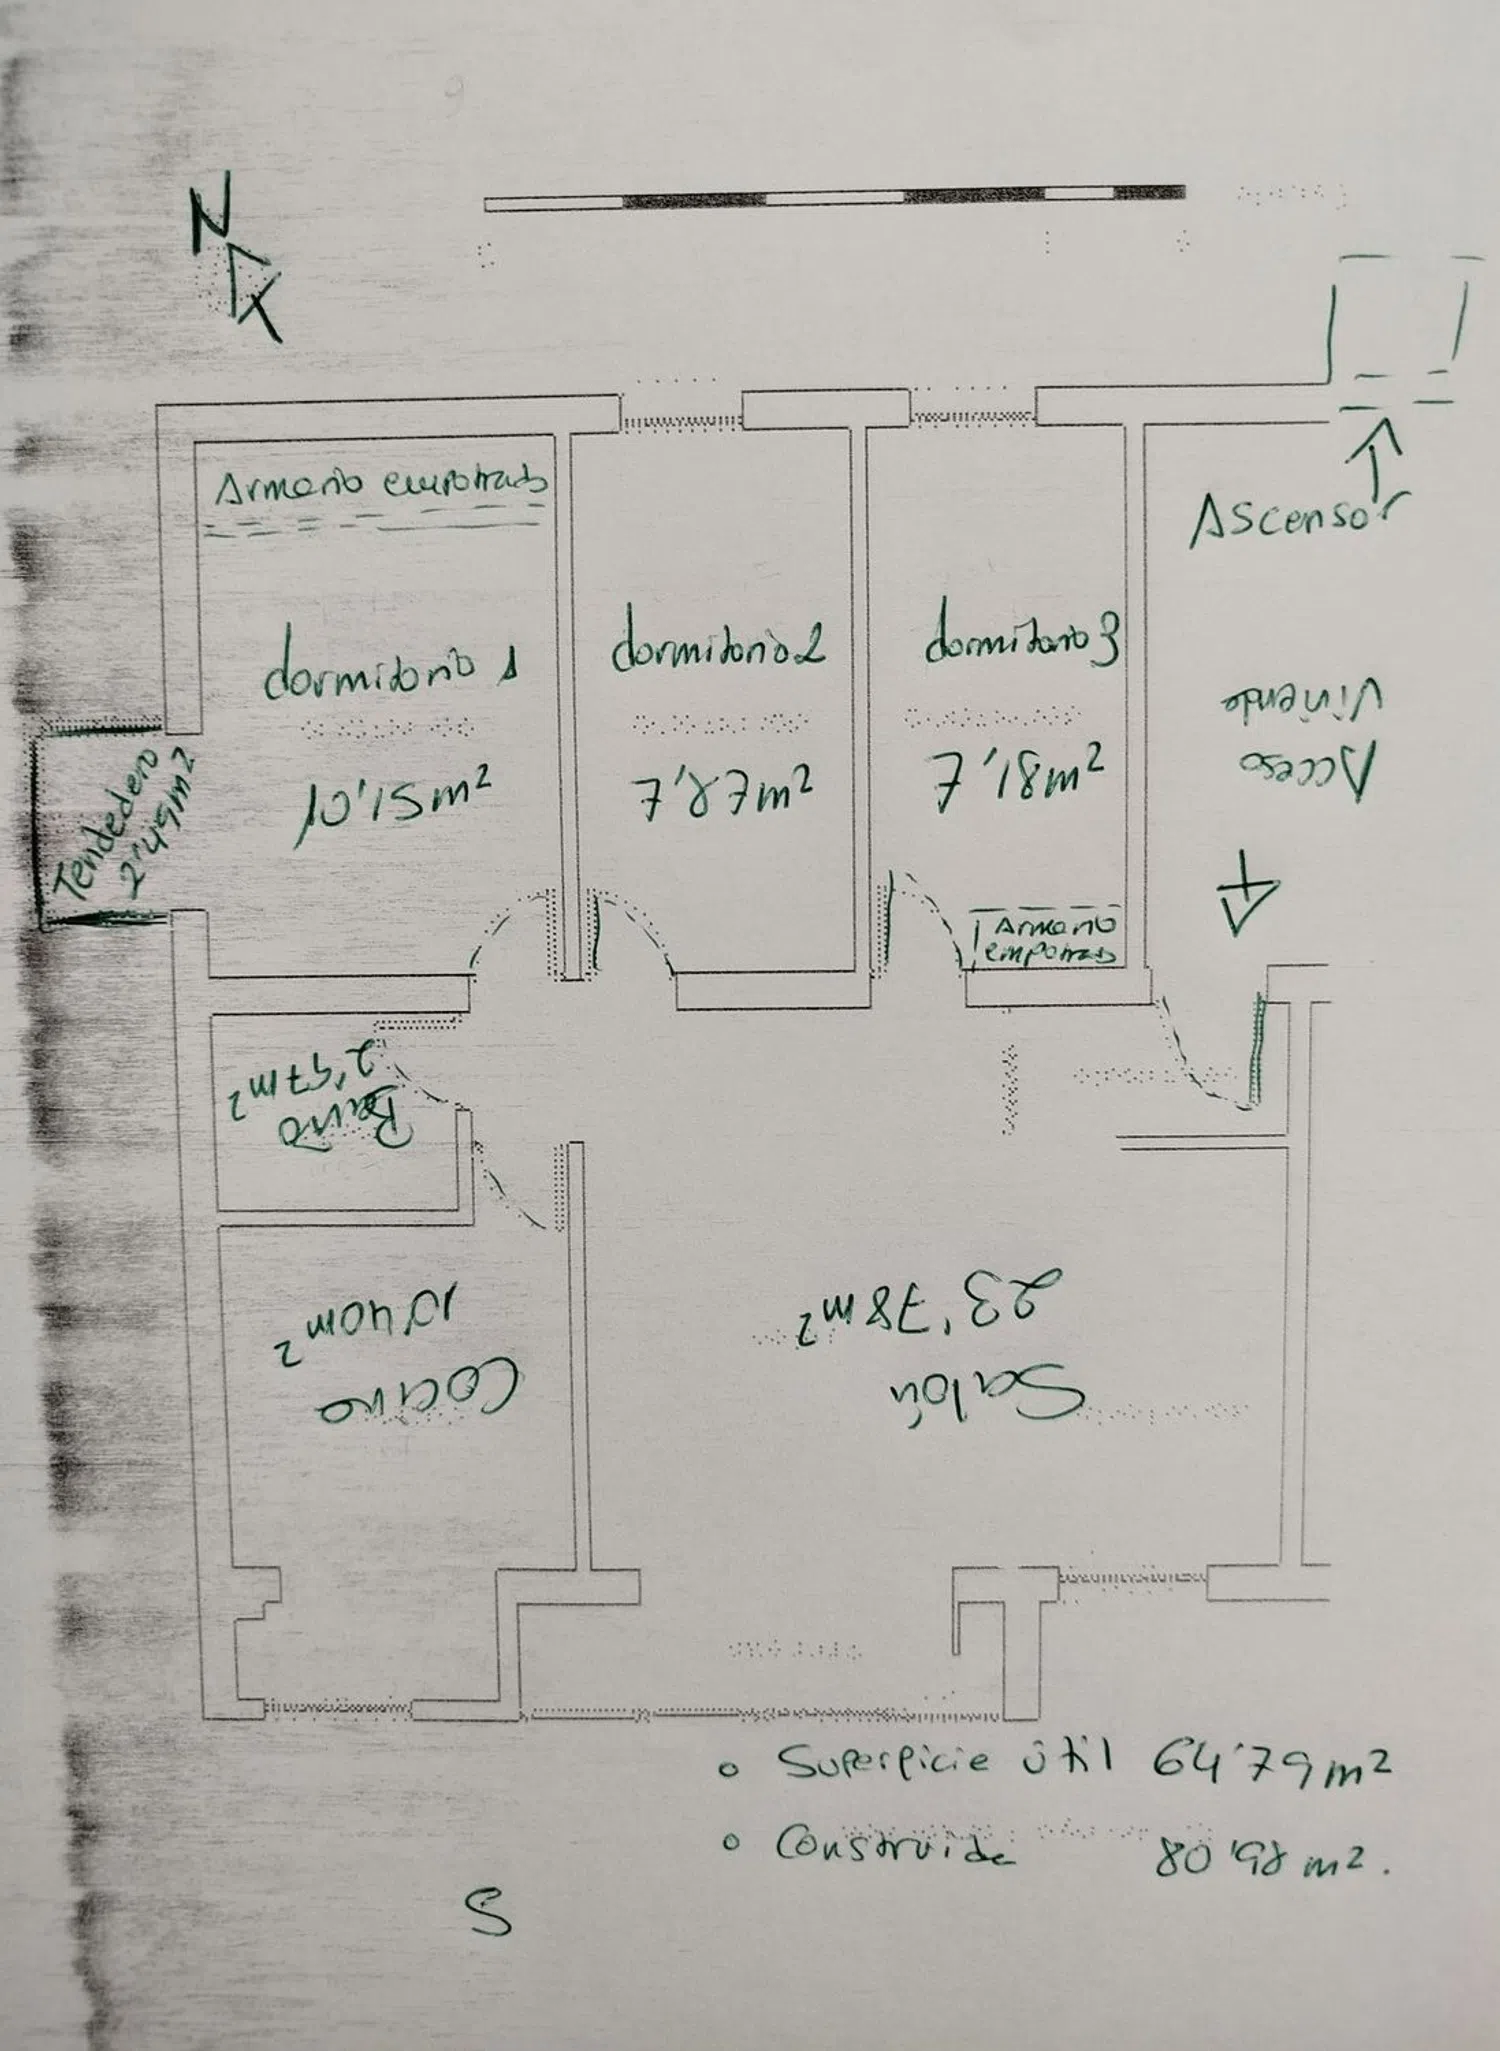 N
Armario empotrado
Ascensor
dormitorio 1
10'15m²
dormitorio 2
7'87m²
dormitorio 3
7'18m²
Acceso
Vivienda
Tendedero
2'49m²
Armario
empotrado
Baño
2'57m²
Cocina
10,40m²
Salón
23'78m²
• Superficie útil 64'79m²
• Construida 80'98 m².
S